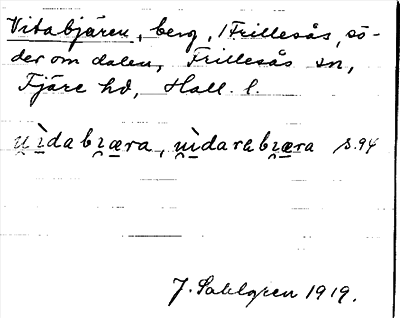 Vitabjären, berg, i Frillesås, sö-
der om dalen, Frillesås sn,
Fjäre hd, Hall. l.
s. 94
J. Sahlgren 1919.